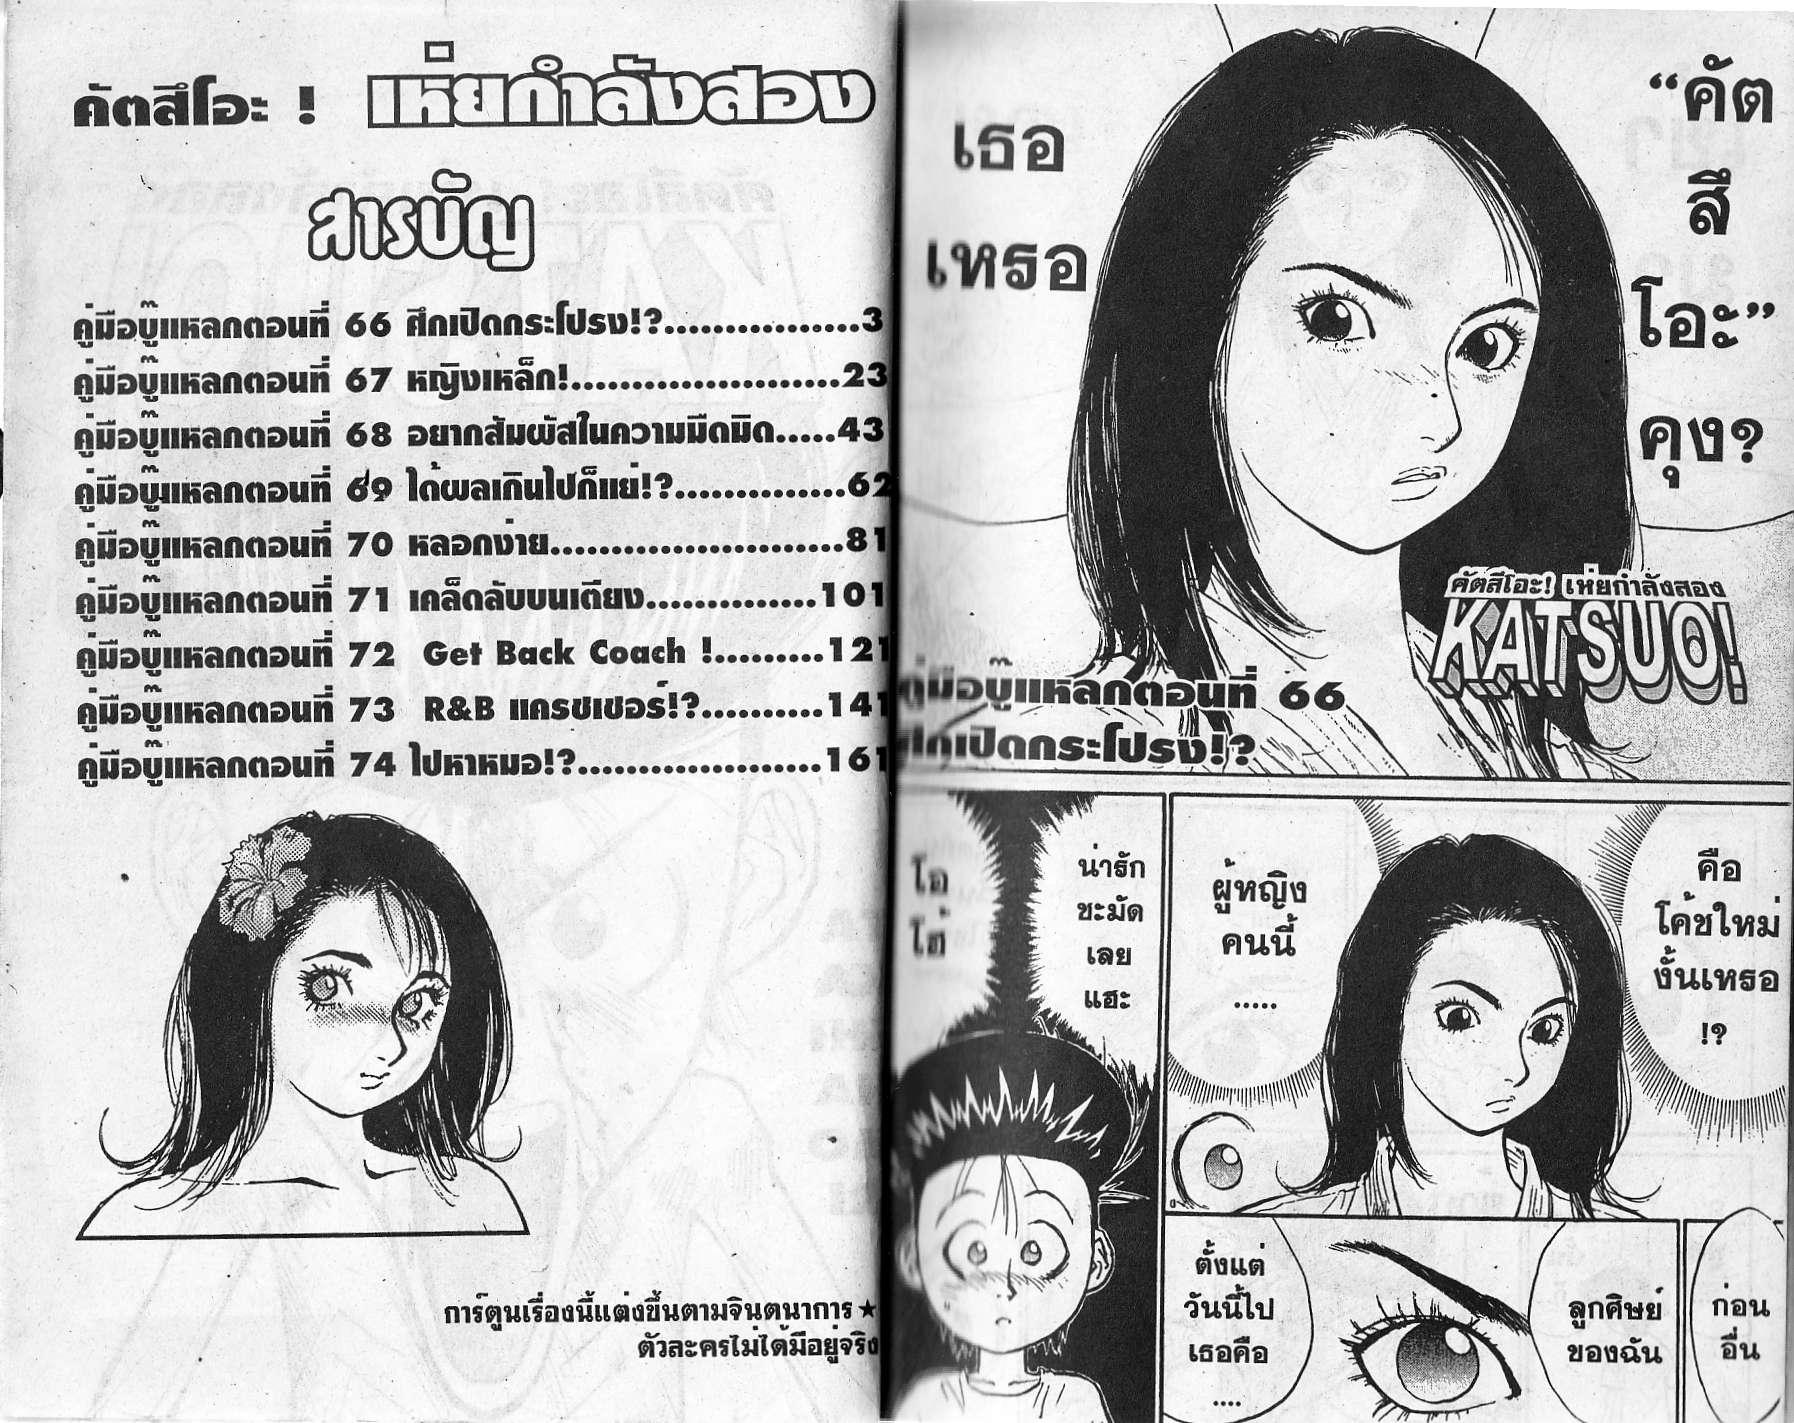 คัตสึโอะ ! เห่ยกำลังสอง
สารบัญ
คู่มือบู๊แหลกตอนที่ 66 ศึกเปิดกระโปรง!?................3
คู่มือบู๊แหลกตอนที่ 67 หญิงเหล็ก!......................23
คู่มือบู๊แหลกตอนที่ 68 อยากสัมผัสในความมืดมิด.....43
คู่มือบู๊แหลกตอนที่ 69 ได้ผลเกินไปก็แย่!?..............62
คู่มือบู๊แหลกตอนที่ 70 หลอกง่าย........................81
คู่มือบู๊แหลกตอนที่ 71 เคล็ดลับบนเตียง..............101
คู่มือบู๊แหลกตอนที่ 72 Get Back Coach !.........121
คู่มือบู๊แหลกตอนที่ 73 R&B แครชเชอร์!?..........141
คู่มือบู๊แหลกตอนที่ 74 ไปหาหมอ!?....................161
การ์ตูนเรื่องนี้แต่งขึ้นตามจินตนาการ ★
ตัวละครไม่ได้มีอยู่จริง
“คัต
สึ
โอะ”
คุง?
เธอ
เหรอ
คัตสึโอะ! เห่ยกำลังสอง
KATSUO!
คู่มือบู๊แหลกตอนที่ 66
ศึกเปิดกระโปรง!?
คือ
โค้ชใหม่
งั้นเหรอ
!?
ผู้หญิง
คนนี้
.....
น่ารัก
ชะมัด
เลย
แฮะ
โอ
โฮ้
ก่อน
อื่น
ลูกศิษย์
ของฉัน
ตั้งแต่
วันนี้ไป
เธอคือ
....